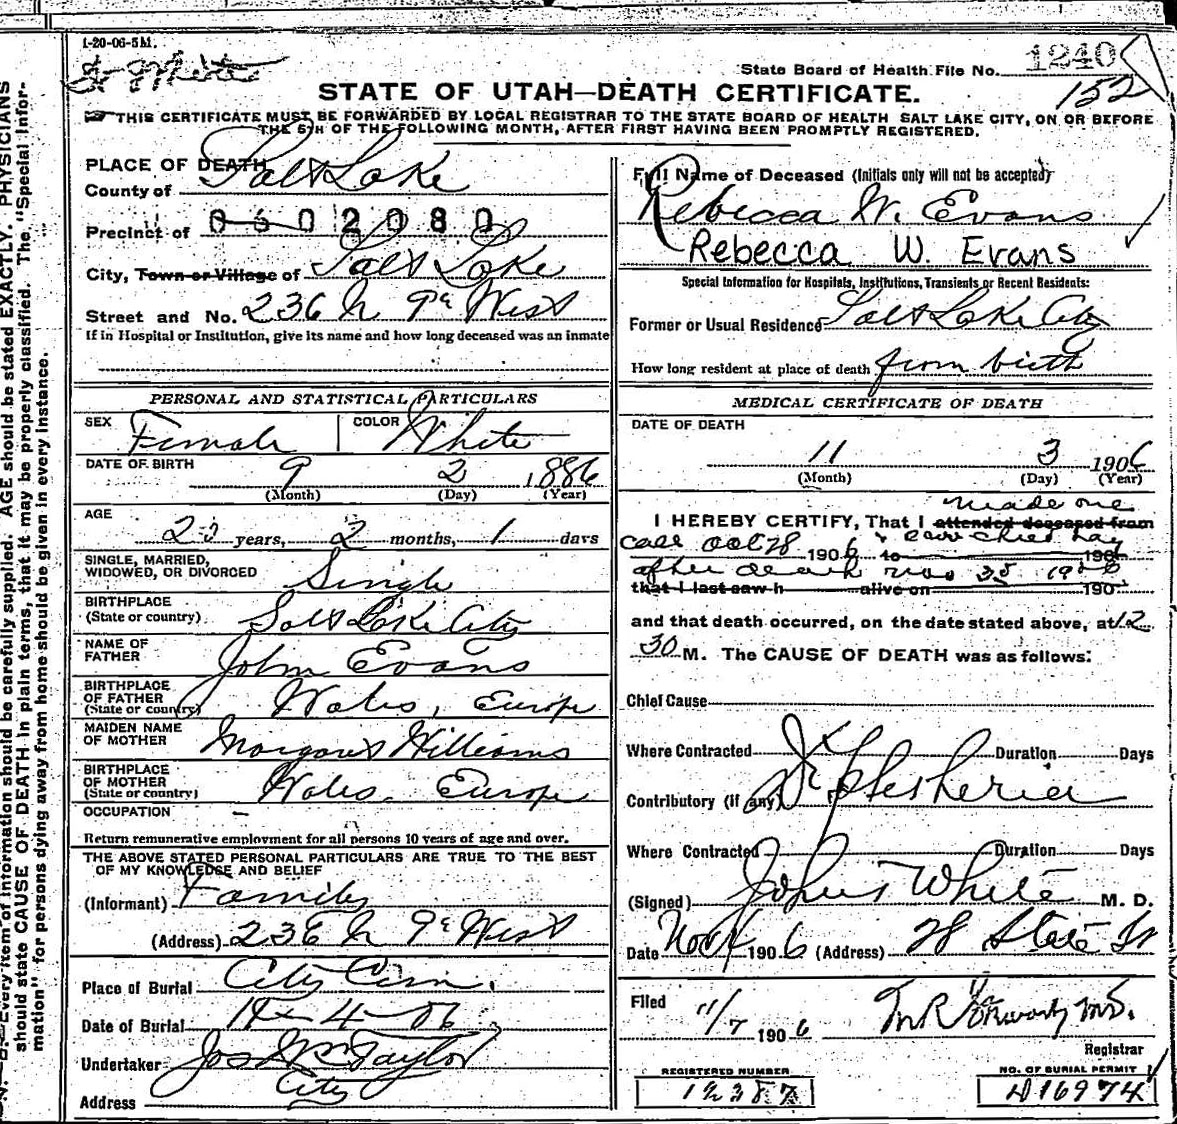 1-20-06-5M.
Dr White
State Board of Health File No. 1240
152
STATE OF UTAH—DEATH CERTIFICATE.
THIS CERTIFICATE MUST BE FORWARDED BY LOCAL REGISTRAR TO THE STATE BOARD OF HEALTH SALT LAKE CITY, ON OR BEFORE
THE 5TH OF THE FOLLOWING MONTH, AFTER FIRST HAVING BEEN PROMPTLY REGISTERED.
PLACE OF DEATH
County of Salt Lake
Precinct of 0602080
City, Town or Village of Salt Lake
Street and No. 236 N 9th West
If in Hospital or Institution, give its name and how long deceased was an inmate
PERSONAL AND STATISTICAL PARTICULARS
SEX Female COLOR White
DATE OF BIRTH 9 2 1886
(Month) (Day) (Year)
AGE
20 years, 2 months, 1 days
SINGLE, MARRIED,
WIDOWED, OR DIVORCED Single
BIRTHPLACE
(State or country) Salt Lake City
NAME OF
FATHER John Evans
BIRTHPLACE
OF FATHER
(State or country) Wales, Europe
MAIDEN NAME
OF MOTHER Margaret Williams
BIRTHPLACE
OF MOTHER
(State or country) Wales. Europe
OCCUPATION –
Return remunerative employment for all persons 10 years of age and over.
THE ABOVE STATED PERSONAL PARTICULARS ARE TRUE TO THE BEST
OF MY KNOWLEDGE AND BELIEF
(Informant) Family
(Address) 236 N 9th West
Place of Burial City Cem.
Date of Burial 11-4-06
Undertaker Jos Wm Taylor
Address City
Full Name of Deceased (Initials only will not be accepted)
Rebecca W. Evans
Rebecca W. Evans
Special Information for Hospitals, Institutions, Transients or Recent Residents:
Former or Usual Residence Salt Lake City
How long resident at place of death from birth
MEDICAL CERTIFICATE OF DEATH
DATE OF DEATH
11 3 1906
(Month) (Day) (Year)
made one
I HEREBY CERTIFY, That I attended deceased from
call Oct 28 1906 to 190
after death Nov 3d 1906
that I last saw h alive on 190
and that death occurred, on the date stated above, at 12
30 M. The CAUSE OF DEATH was as follows:
Chief Cause
Where Contracted Duration Days
Contributory (if any)
Where Contracted Duration Days
(Signed) White M. D.
Date Nov 4 1906 (Address) 28 State St
Filed 11/7 1906
Registrar
REGISTERED NUMBER
12387
NO. OF BURIAL PERMIT
D16974
N. B.—Every item of information should be carefully supplied. AGE should be stated EXACTLY. PHYSICIANS
should state CAUSE OF DEATH in plain terms, that it may be properly classified. The "Special Infor-
mation" for persons dying away from home should be given in every instance.